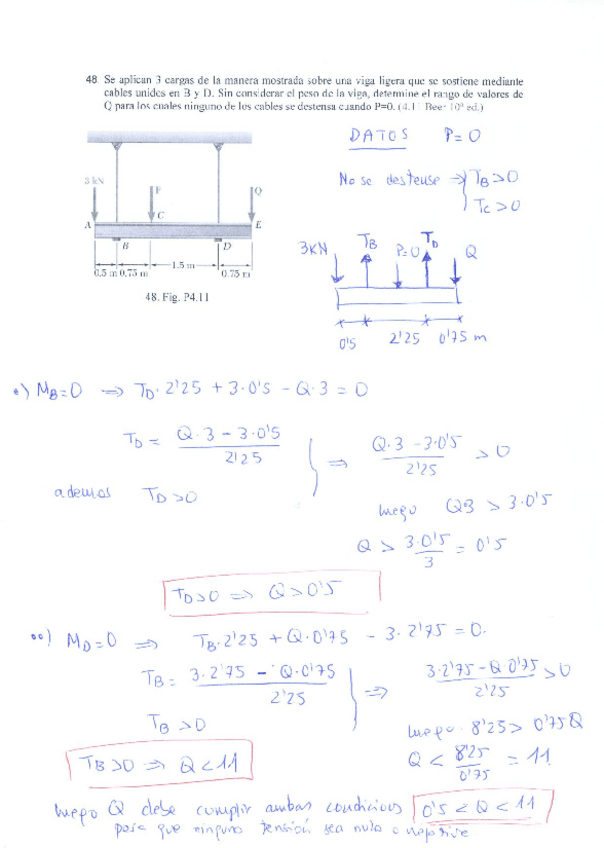 48. Se aplican 3 cargas de la manera mostrada sobre una viga ligera que se sostiene mediante
cables unidos en B y D. Sin considerar el peso de la viga, determine el rango de valores de
Q para los cuales ninguno de los cables se destensa cuando P=0. (4.11 Beer 10ª ed.)
DATOS P=0
No se destense ⇒ TB>0
TC>0
3 kN
P
Q
C
A
E
B
D
0.5 m 0.75 m
1.5 m
0.75 m
48. Fig. P4.11
3KN TB P=0 TD Q
0'5 2'25 0'75 m
•) MB=0 ⇒ TD·2'25 + 3·0'5 - Q·3 = 0
TD = Q·3 - 3·0'5 / 2'25
⇒ Q·3 - 3·0'5 / 2'25 > 0
ademas TD>0
luego Q3 > 3·0'5
Q > 3·0'5 / 3 = 0'5
TD>0 ⇒ Q>0'5
••) MD=0 ⇒ TB·2'25 + Q·0'75 - 3·2'75 = 0.
TB = 3·2'75 - Q·0'75 / 2'25
⇒ 3·2'75 - Q 0'75 / 2'25 > 0
TB >0
luego 8'25 > 0'75Q
TB>0 ⇒ Q<11
Q < 8'25 / 0'75 = 11
luego Q debe cumplir ambas condicions 0'5 < Q < 11
para que ninguna tensión sea nula o negative